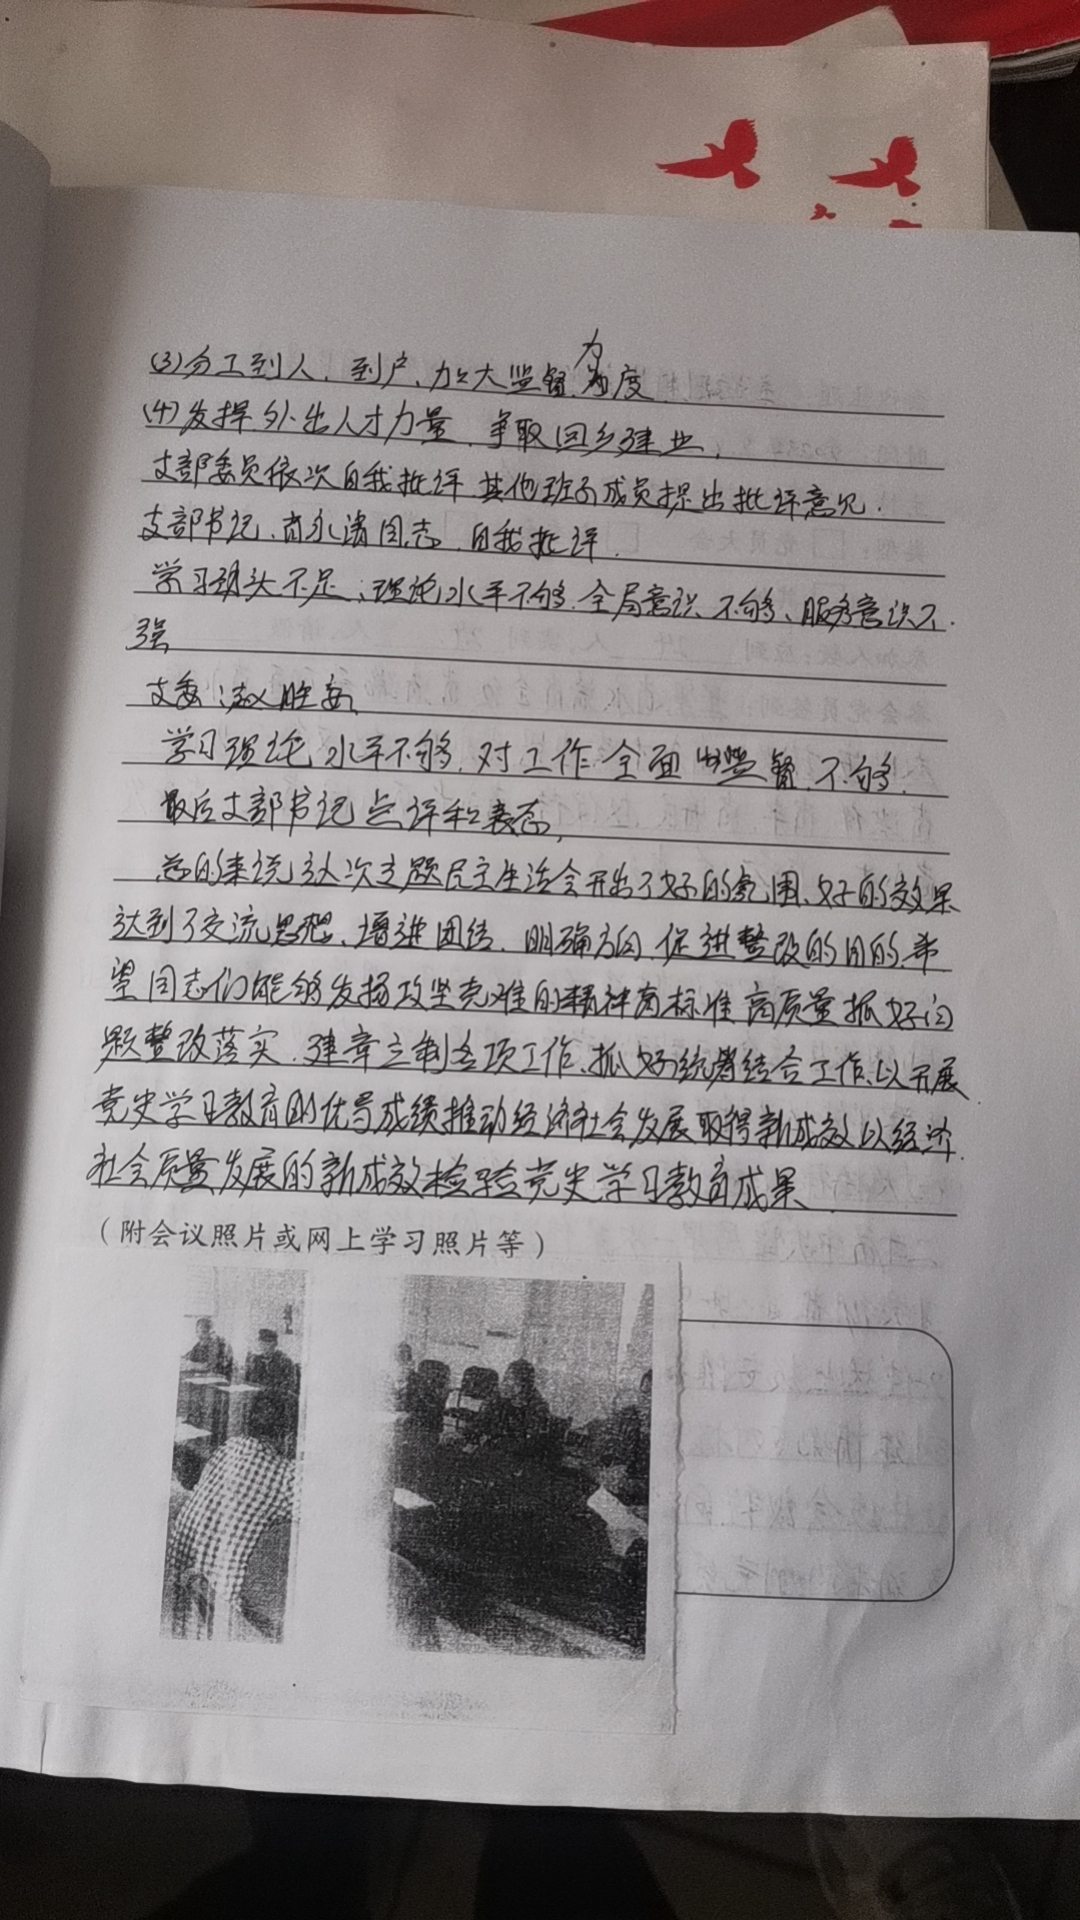 (3)分工到人、到户、加大监督力度
(4)发挥外出人才力量、争取回乡建业,
支部委员依次自我批评 其他班子成员提出批评意见.
支部书记、肖永清同志、自我批评.
学习劲头不足、理论水平不够、全局意识不够、服务意识不
强
支委:赵胜安
学习理论水平不够、对工作全面监督不够.
最后支部书记点评和表态,
总的来说这次主题民主生活会开出了好的氛围、好的效果
达到了交流思想、增进团结、明确方向、促进整改的目的、希
望同志们能够发扬攻坚克难的精神高标准高质量抓好问
题整改落实、建章立制各项工作、抓好统筹结合工作、以开展
党史学习教育的优异成绩推动经济社会发展取得新成效以经济
社会质量发展的新成效检验党史学习教育成果
(附会议照片或网上学习照片等)